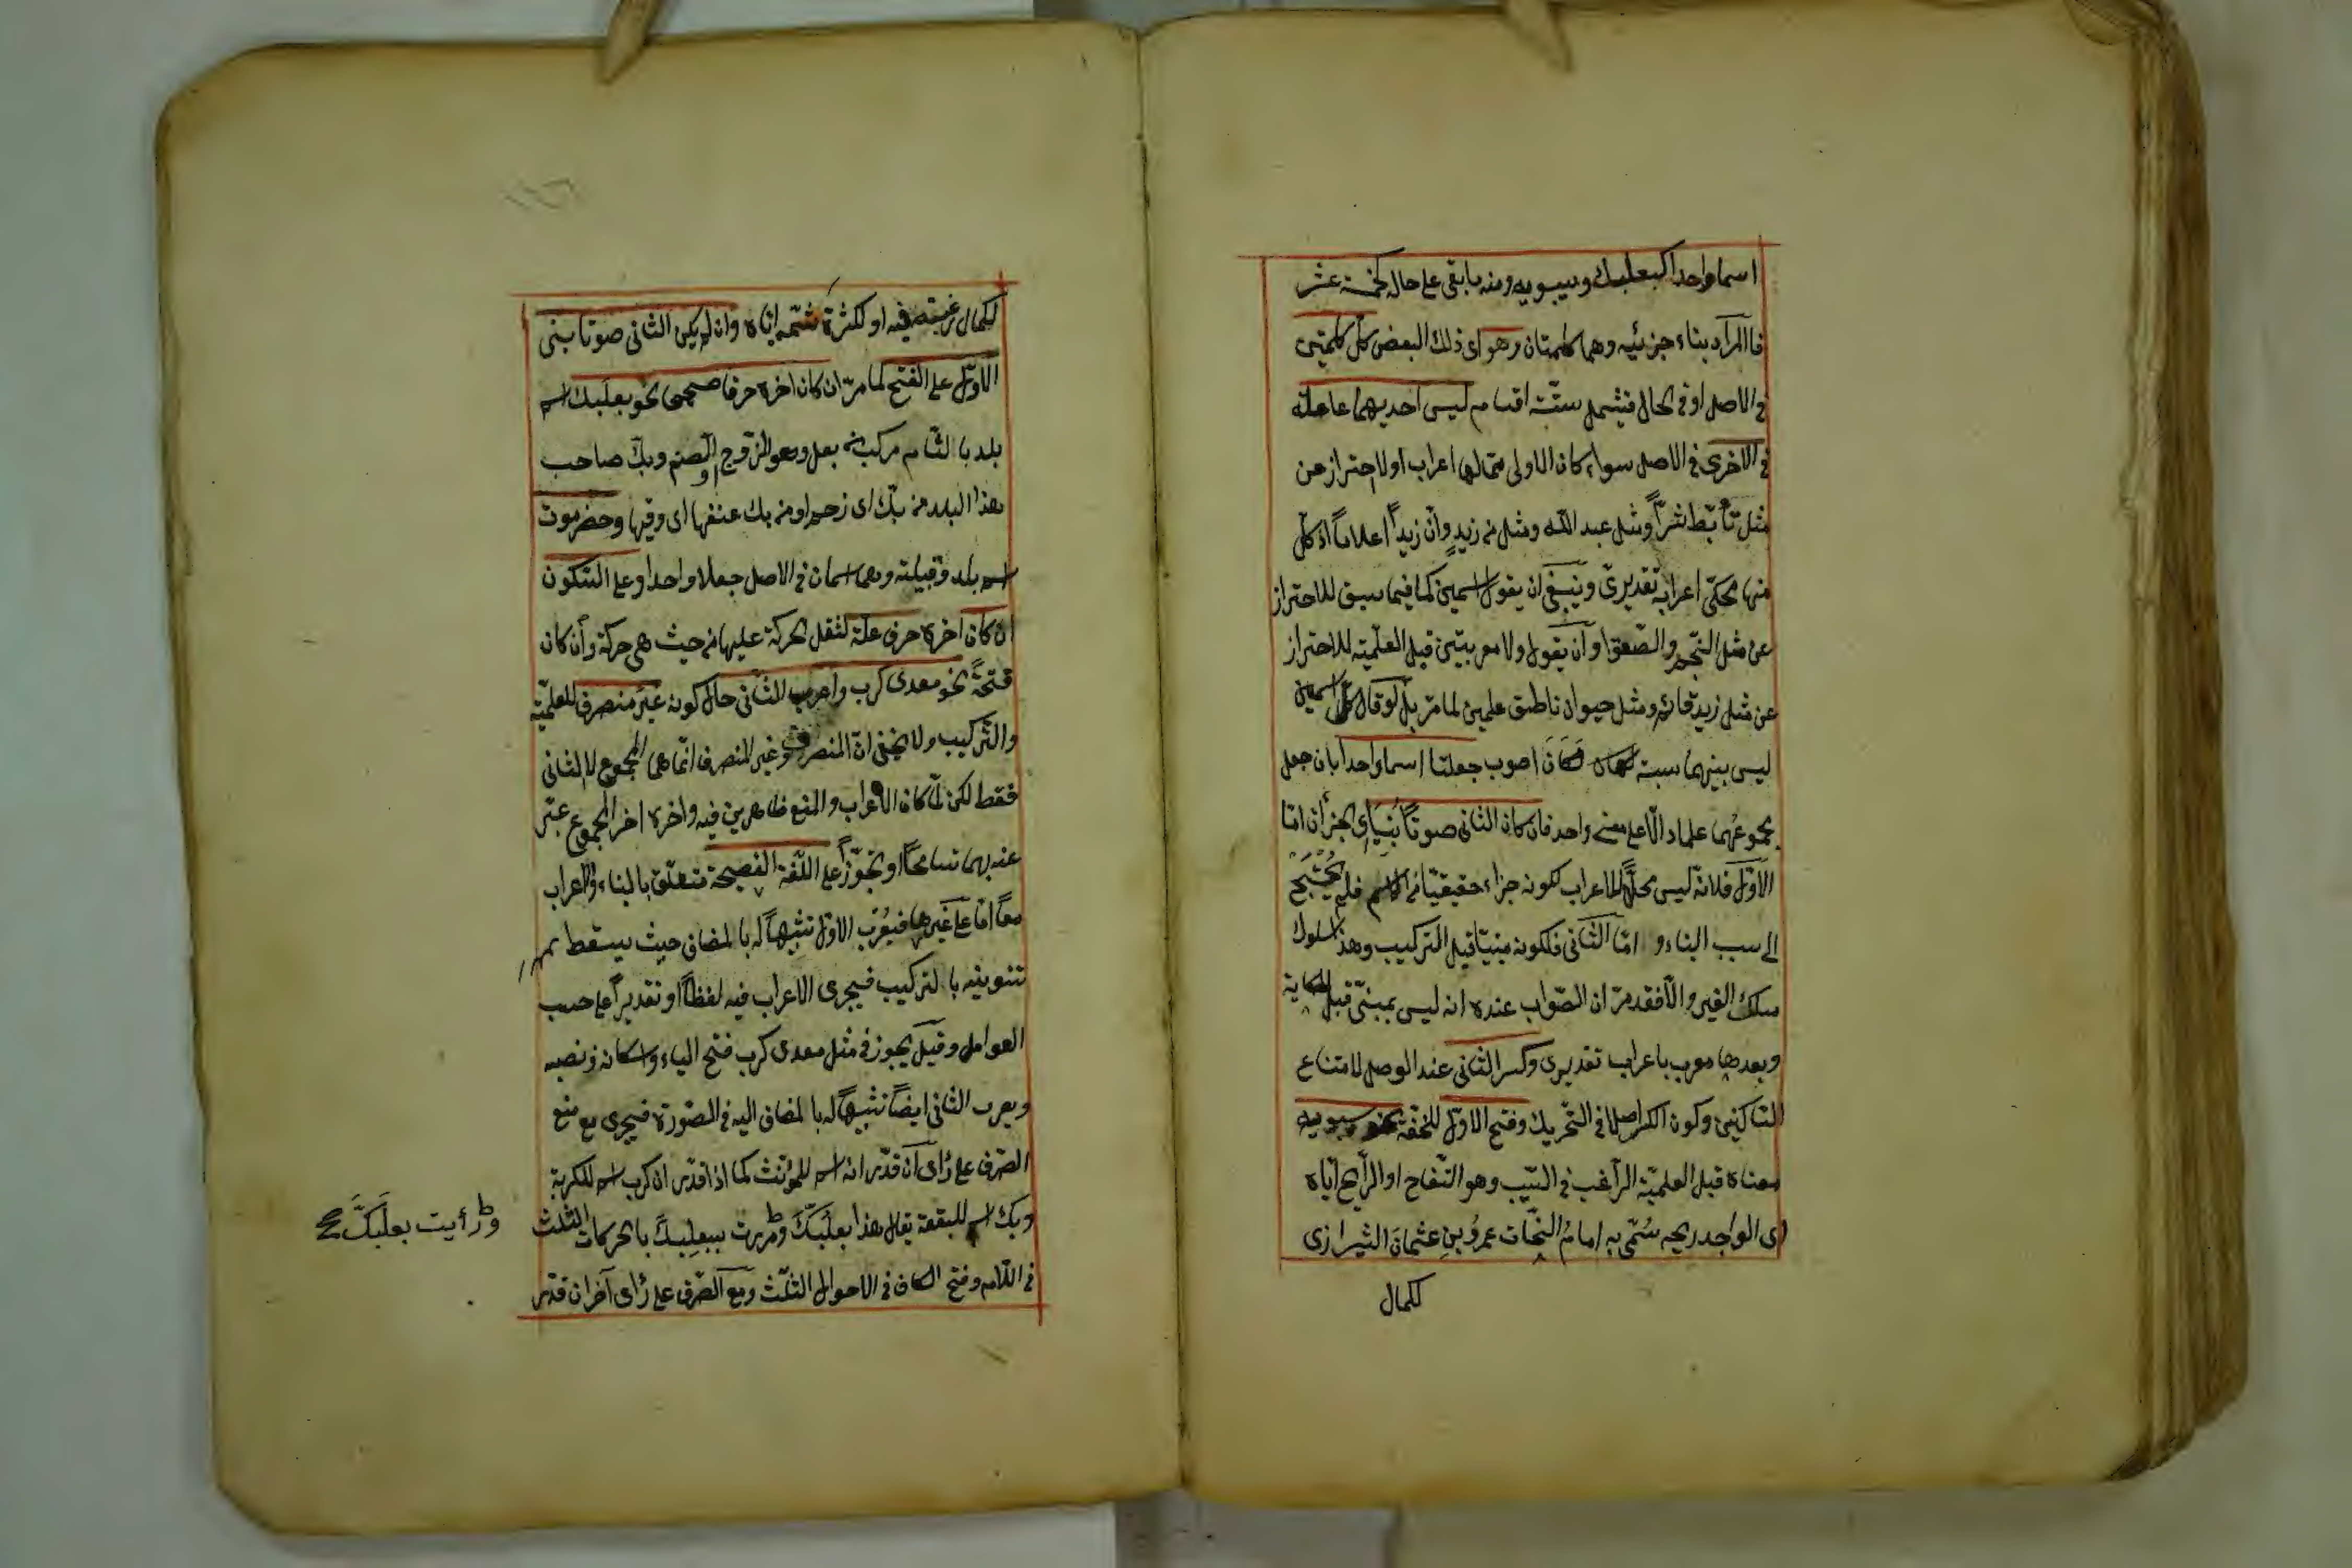 اسما واحدا كبعلبك وسيبويه ومنه ما بقى على حاله كخمسة عشر
فالمراد بناء جزئيه وهما كلمتان وهو اى ذلك البعض كل كلمتين
فى الاصل او فى الحال فيشمل ستة اقسام ليس احديهما عاملة
فى الاخرى فى الاصل سواء كان الاولى مما لها اعراب او لا احتراز عن
مثل تأبّط شرّاً ومثل عبد الله ومثل من زيدٍ وانّ زيداً اعلاماً اذ كلّ
منها محكىّ اعرابه تقديرىّ وينبغى ان يقول اسمين كما فيما سبق للاحتراز
عن مثل النّجم والصّعق او ان يقول ولا معربتين قبل العلميّة للاحتراز
عن مثل زيد قائم ومثل حيوان ناطق علمين لما مرّ بل لو قال كلّ اسمين
ليس بينهما نسبة لكان اصوب جعلتا اسما واحدا بان جعل
مجموعهما علما دالّا على معنى واحد فان كان الثانى صوتاً بُنِيَا اى الجزأن امّا
الاوّل فلانّه ليس محلّاً للاعراب لكونه جزاء حقيقيّا من الاسم فلم يُحْتَج
الى سبب البناء و امّا الثّانى فلكونه مبنيّا قبل التركيب وهذا سلوك
مسلك الغير والّا فقد مرّ ان الصّواب عنده انه ليس بمبنىّ قبل الحكاية
وبعدها معرب باعراب تقديرى وكسر الثانى عند الوصل لامتناع
السّاكنين وكون الكسر اصلا فى التّحريك وفتح الاوّل للخفّة نحو سيبويه
معناه قبل العلميّة الرّاغب فى السّيب وهو التّفاح او الرّايح ايّاه
اى الواجد ريحه سُمّى به امامُ النحات عمروُ بنِ عثمانَ الشيرازى
لكمال
لكمال رغبته فيه او لكثرة شمّه ايّاه وان لم يكن الثانى صوتا بنى
الاوّل على الفتح كما مرّ ان كان اخره حرفا صحيحا نحو بعلبك اسم
بلد بالشّام مركب من بعل وهو الزّوج او الصنم وبكّ صاحب
هذا البلد من بكّ اى زحم او من بك عنقها اى دقّها وحضرموت
اسم بلد وقبيلة وهما اسمان فى الاصل جعلا واحدا وعلى السّكون
ان كان اخره حرف علّة لثقل الحركة عليها من حيث هى حركة وان كان
فتحةً نحو معدى كرب واعرب الثّانى حال كونه غير منصرف للعلميّة
والتّركيب ولا يخفى انّ المنصرف وغير المنصرف انّما هى المجموع لا الثانى
فقط لكن لمّا كان الاعراب والمنع ظاهرين فيه واخره اخر المجموع عبّر
عنه بهما تسامحاً او تجوّزاً على اللّغة الفصيحة متعلّق بالبناء والاعراب
معا امّا على غيرها فيُعرب الاوّل تشبيهاً له بالمضاف حيث يسقط
تنوينه بالتركيب فيجرى الاعراب فيه لفظاً او تقديراً على حسب
العوامل وقيل يجوز فى مثل معدى كرب فتح الياء واسكانه ونصبه
ويعرب الثانى ايضاً تشبيهاً له بالمضاف اليه فى الصّورة فيجرى مع منع
الصّرف على رأى ان قدّر انه اسم للمؤنث كما اذا قدّر ان كرب اسم للكربة
وبك اسم للبقعة يقال هذا بعلُبَكَّ ومررت ببعلِبكَّ بالحركات الثلث
ورأيت بعلَبَكَّ صح
فى اللّام وفتح الكاف فى الاحوال الثلّث ومع الصّرف على رأى آخر ان قدّر